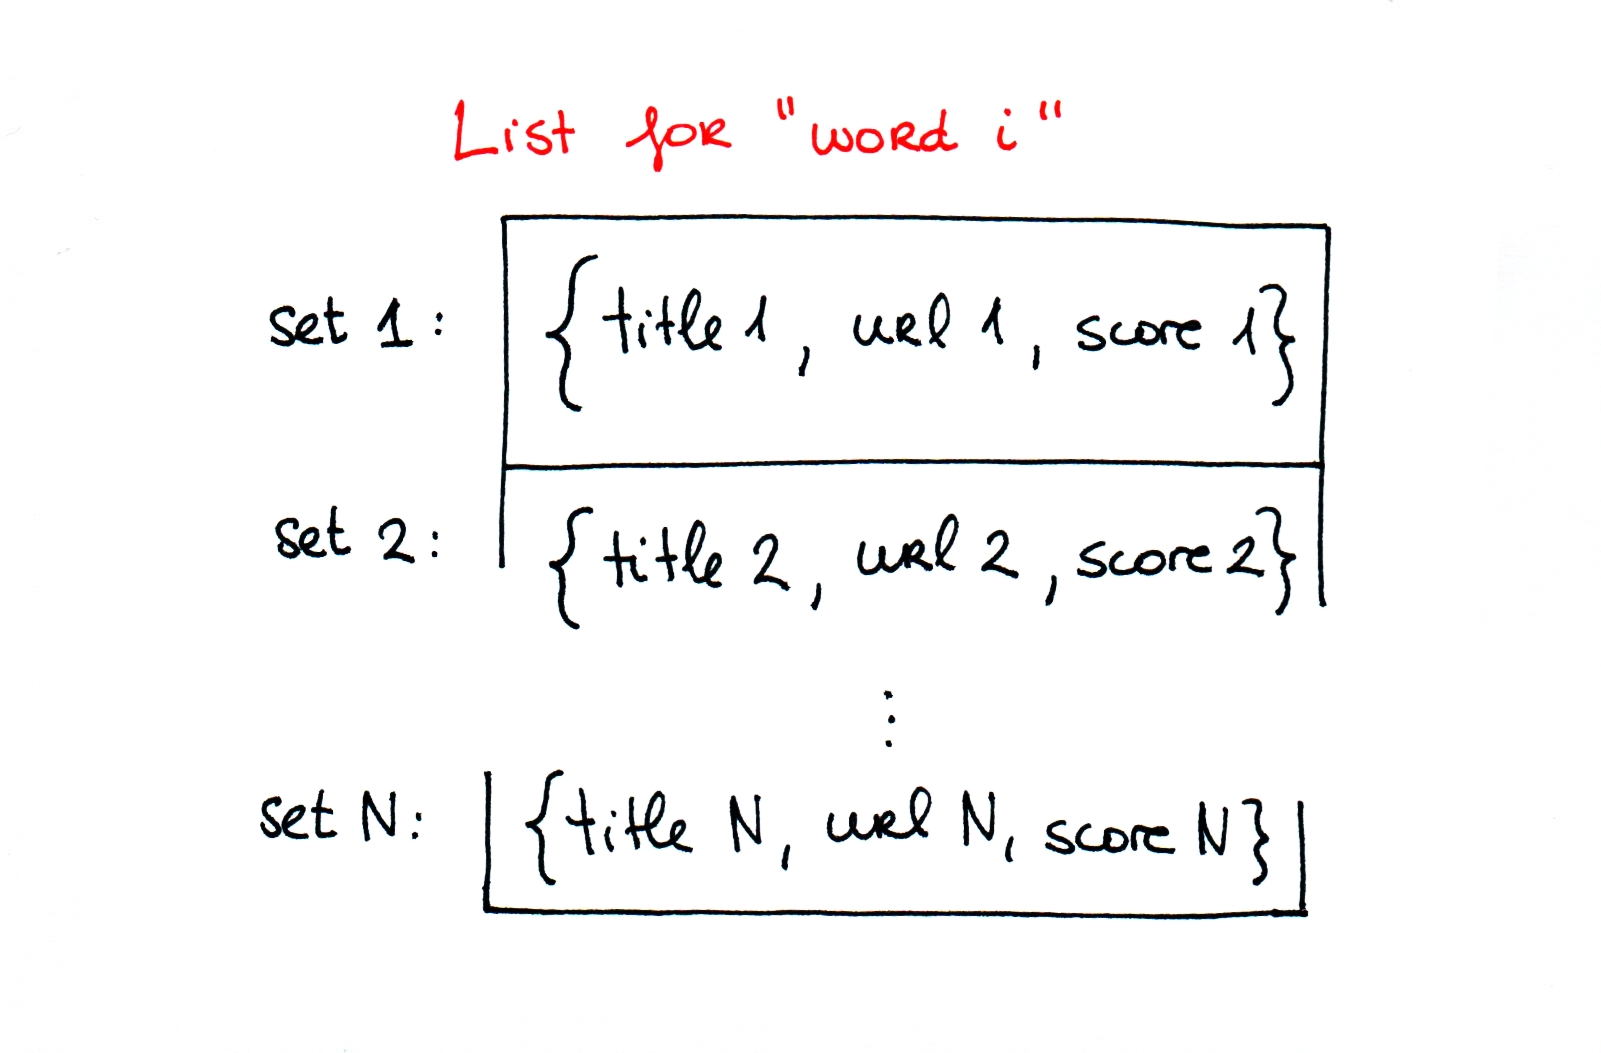 List for "word i"
set 1: {title 1, url 1, score 1}
set 2: {title 2, url 2, score 2}
⋮
set N: {title N, url N, score N}